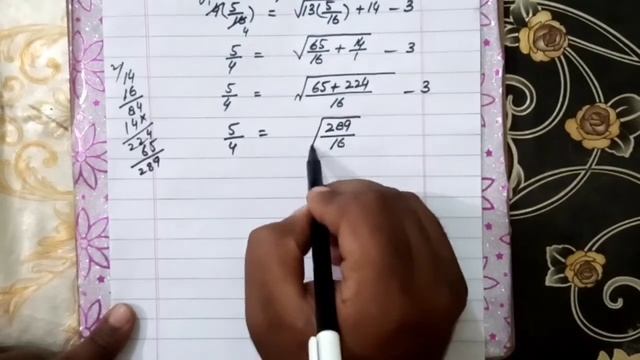 4(5/16) = √13(5/16) + 14 - 3
5/4 = √65/16 + 14/1 - 3
5/4 = √65 + 224/16 - 3
5/4 = √289/16
2/
14
16
84
14×
224
65
289